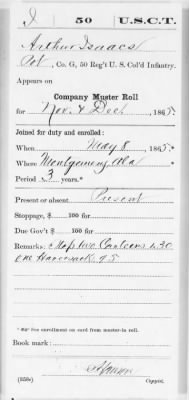 I 50 U.S.C.T.
Arthur Isaacs
Pvt, Co. G, 50 Reg't U. S. Col'd Infantry.
Appears on
Company Muster Roll
for Nov. & Dec., 1865.
Joined for duty and enrolled:
When May 8, 1865.
Where Montgomery, Ala *
Period 3 years.*
Present or absent Present
Stoppage, $ 100 for
Due Gov't $ 100 for
Remarks: Stop two Canteens
one Haversack
* See enrollment on card from muster-in roll.
Book mark:
(358c) Copyist.